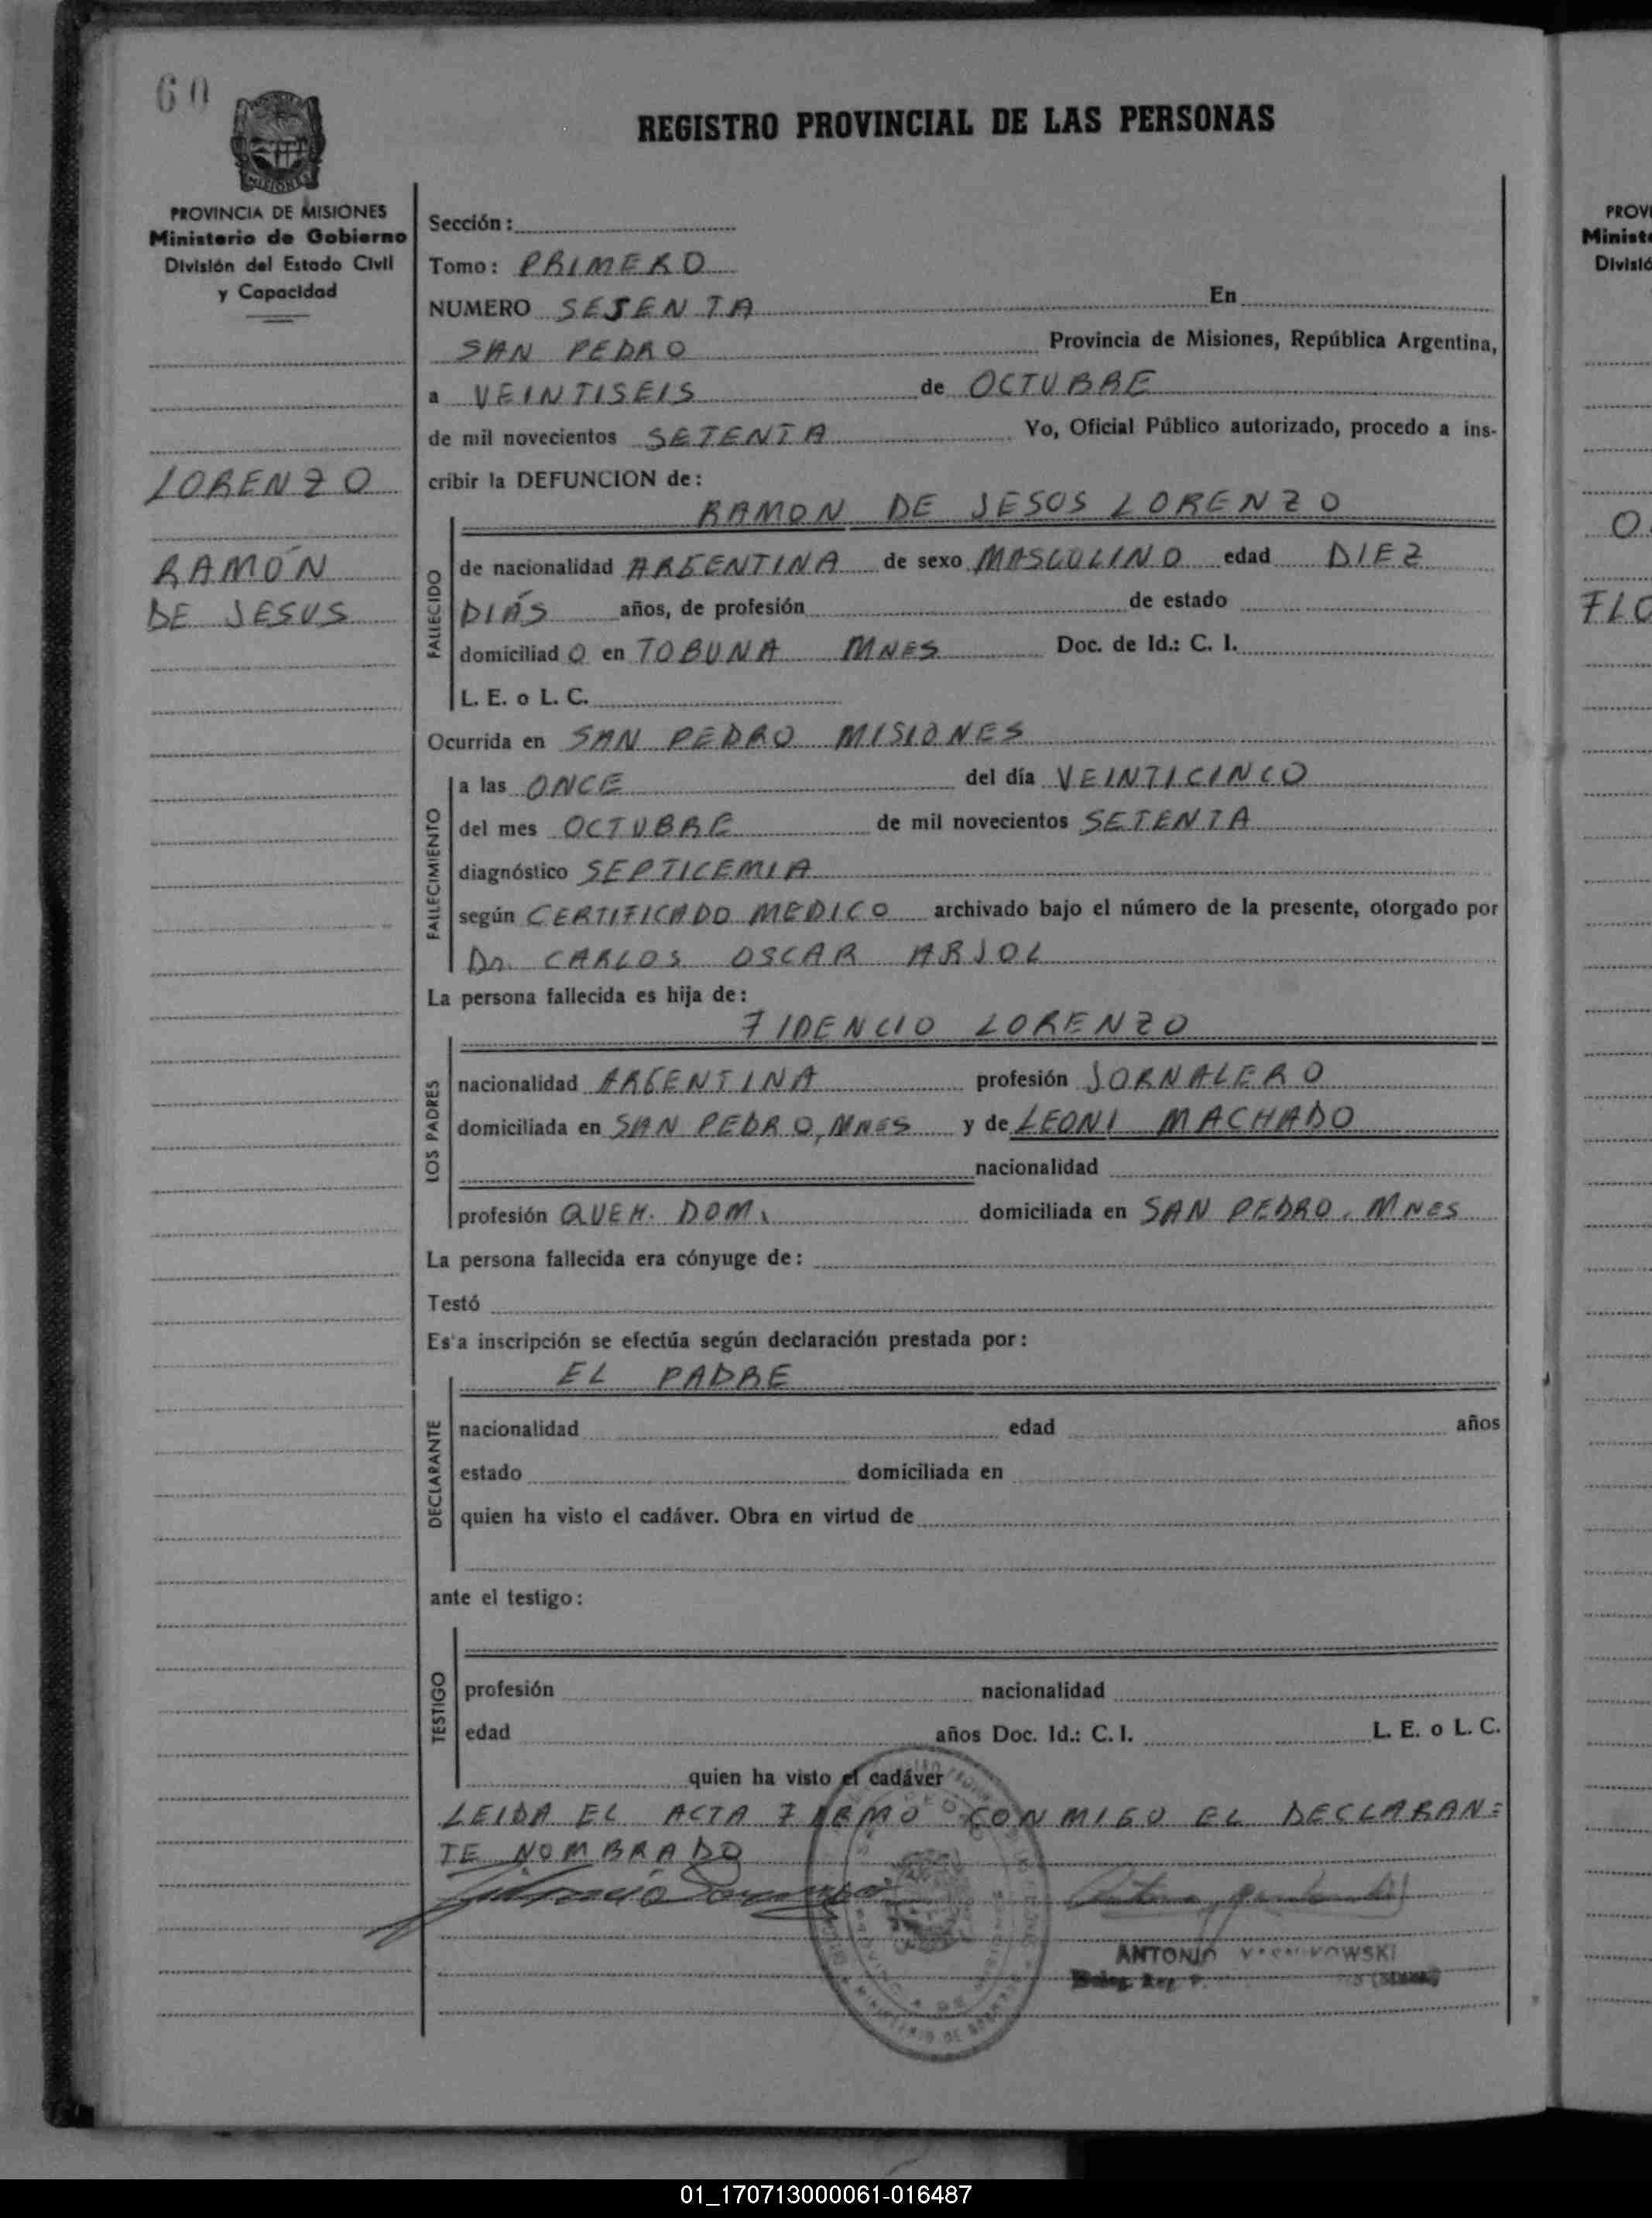 60
REGISTRO PROVINCIAL DE LAS PERSONAS
MISIONES
PROVINCIA DE MISIONES
Ministerio de Gobierno
División del Estado Civil
y Capacidad
LORENZO
RAMÓN
DE JESUS
Sección:
Tomo: PRIMERO
NUMERO SESENTA En
SAN PEDRO Provincia de Misiones, República Argentina,
a VEINTISEIS de OCTUBRE
de mil novecientos SETENTA Yo, Oficial Público autorizado, procedo a ins-
cribir la DEFUNCION de:
RAMON DE JESUS LORENZO
FALLECIDO
de nacionalidad ARGENTINA de sexo MASCULINO edad DIEZ
DIAS años, de profesión de estado
domiciliad O en TOBUNA MNES Doc. de Id.: C. I.
L. E. o L. C.
Ocurrida en SAN PEDRO MISIONES
FALLECIMIENTO
a las ONCE del día VEINTICINCO
del mes OCTUBRE de mil novecientos SETENTA
diagnóstico SEPTICEMIA
según CERTIFICADO MEDICO archivado bajo el número de la presente, otorgado por
Dr. CARLOS OSCAR ARJOL
La persona fallecida es hija de:
FIDENCIO LORENZO
LOS PADRES
nacionalidad ARGENTINA profesión JORNALERO
domiciliada en SAN PEDRO, MNES y de LEONI MACHADO
nacionalidad
profesión QUEH. DOM. domiciliada en SAN PEDRO, MNES
La persona fallecida era cónyuge de:
Testó
Es'a inscripción se efectúa según declaración prestada por:
EL PADRE
DECLARANTE
nacionalidad edad años
estado domiciliada en
quien ha visto el cadáver. Obra en virtud de
ante el testigo:
TESTIGO
profesión nacionalidad
edad años Doc. Id.: C. I. L. E. o L. C.
quien ha visto el cadáver
LEIDA EL ACTA FIRMO CONMIGO EL DECLARAN=
TE NOMBRADO
ANTONIO
PROVI
Ministe
Divisió
O
FLO
01_170713000061-016487